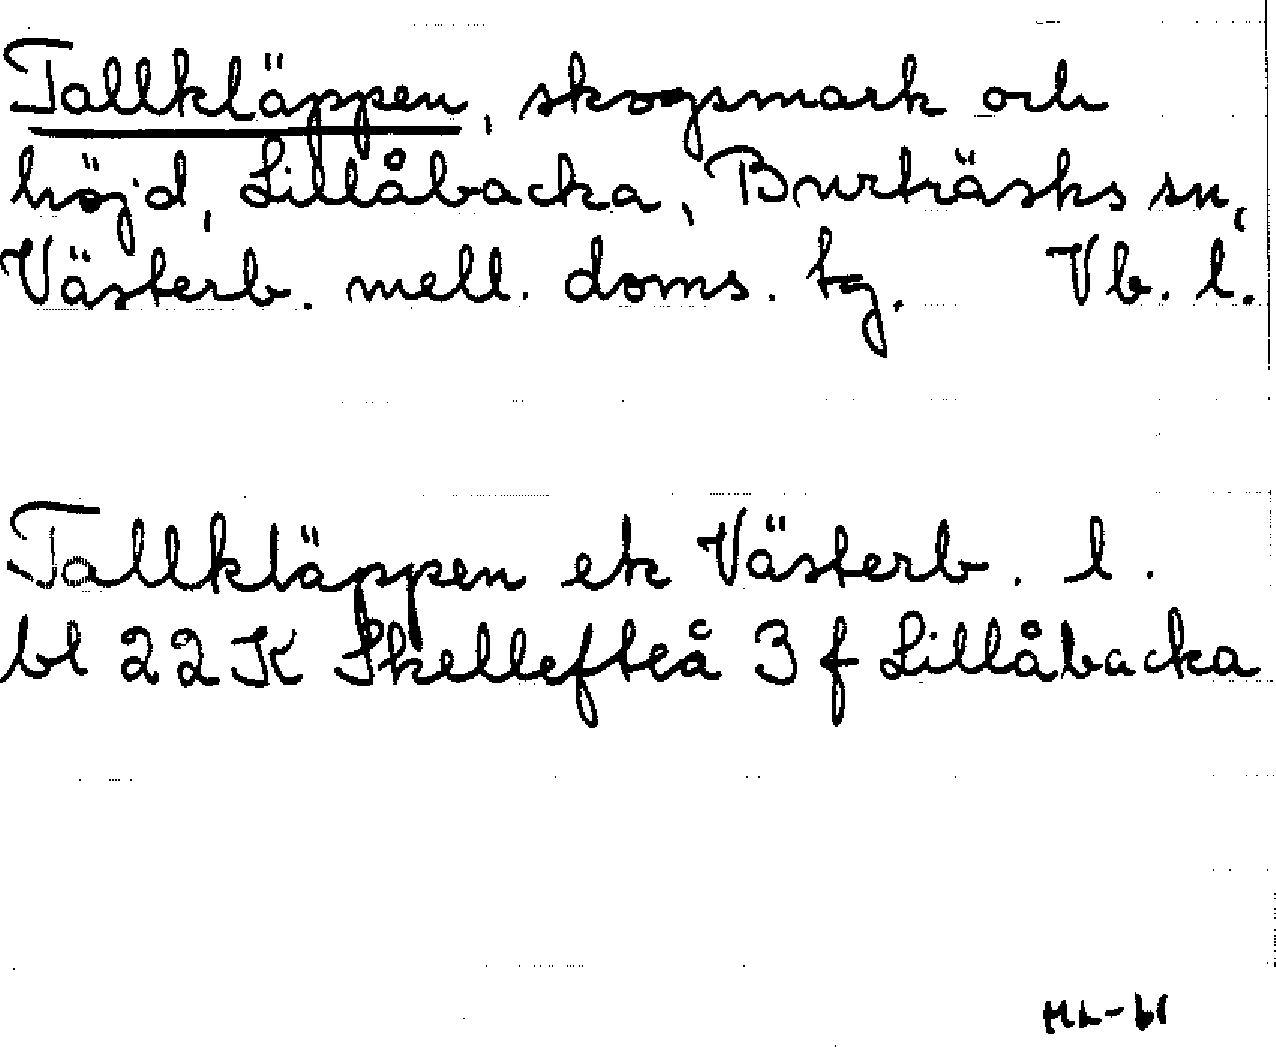 Tallkläppen, skogsmark och
höjd, Lillåbacka, Burträsks sn,
Västerb. mell. doms. tg. Vb. l.
Tallkläppen ek Västerb. l.
bl 22 K Skellefteå 3 f Lillåbacka